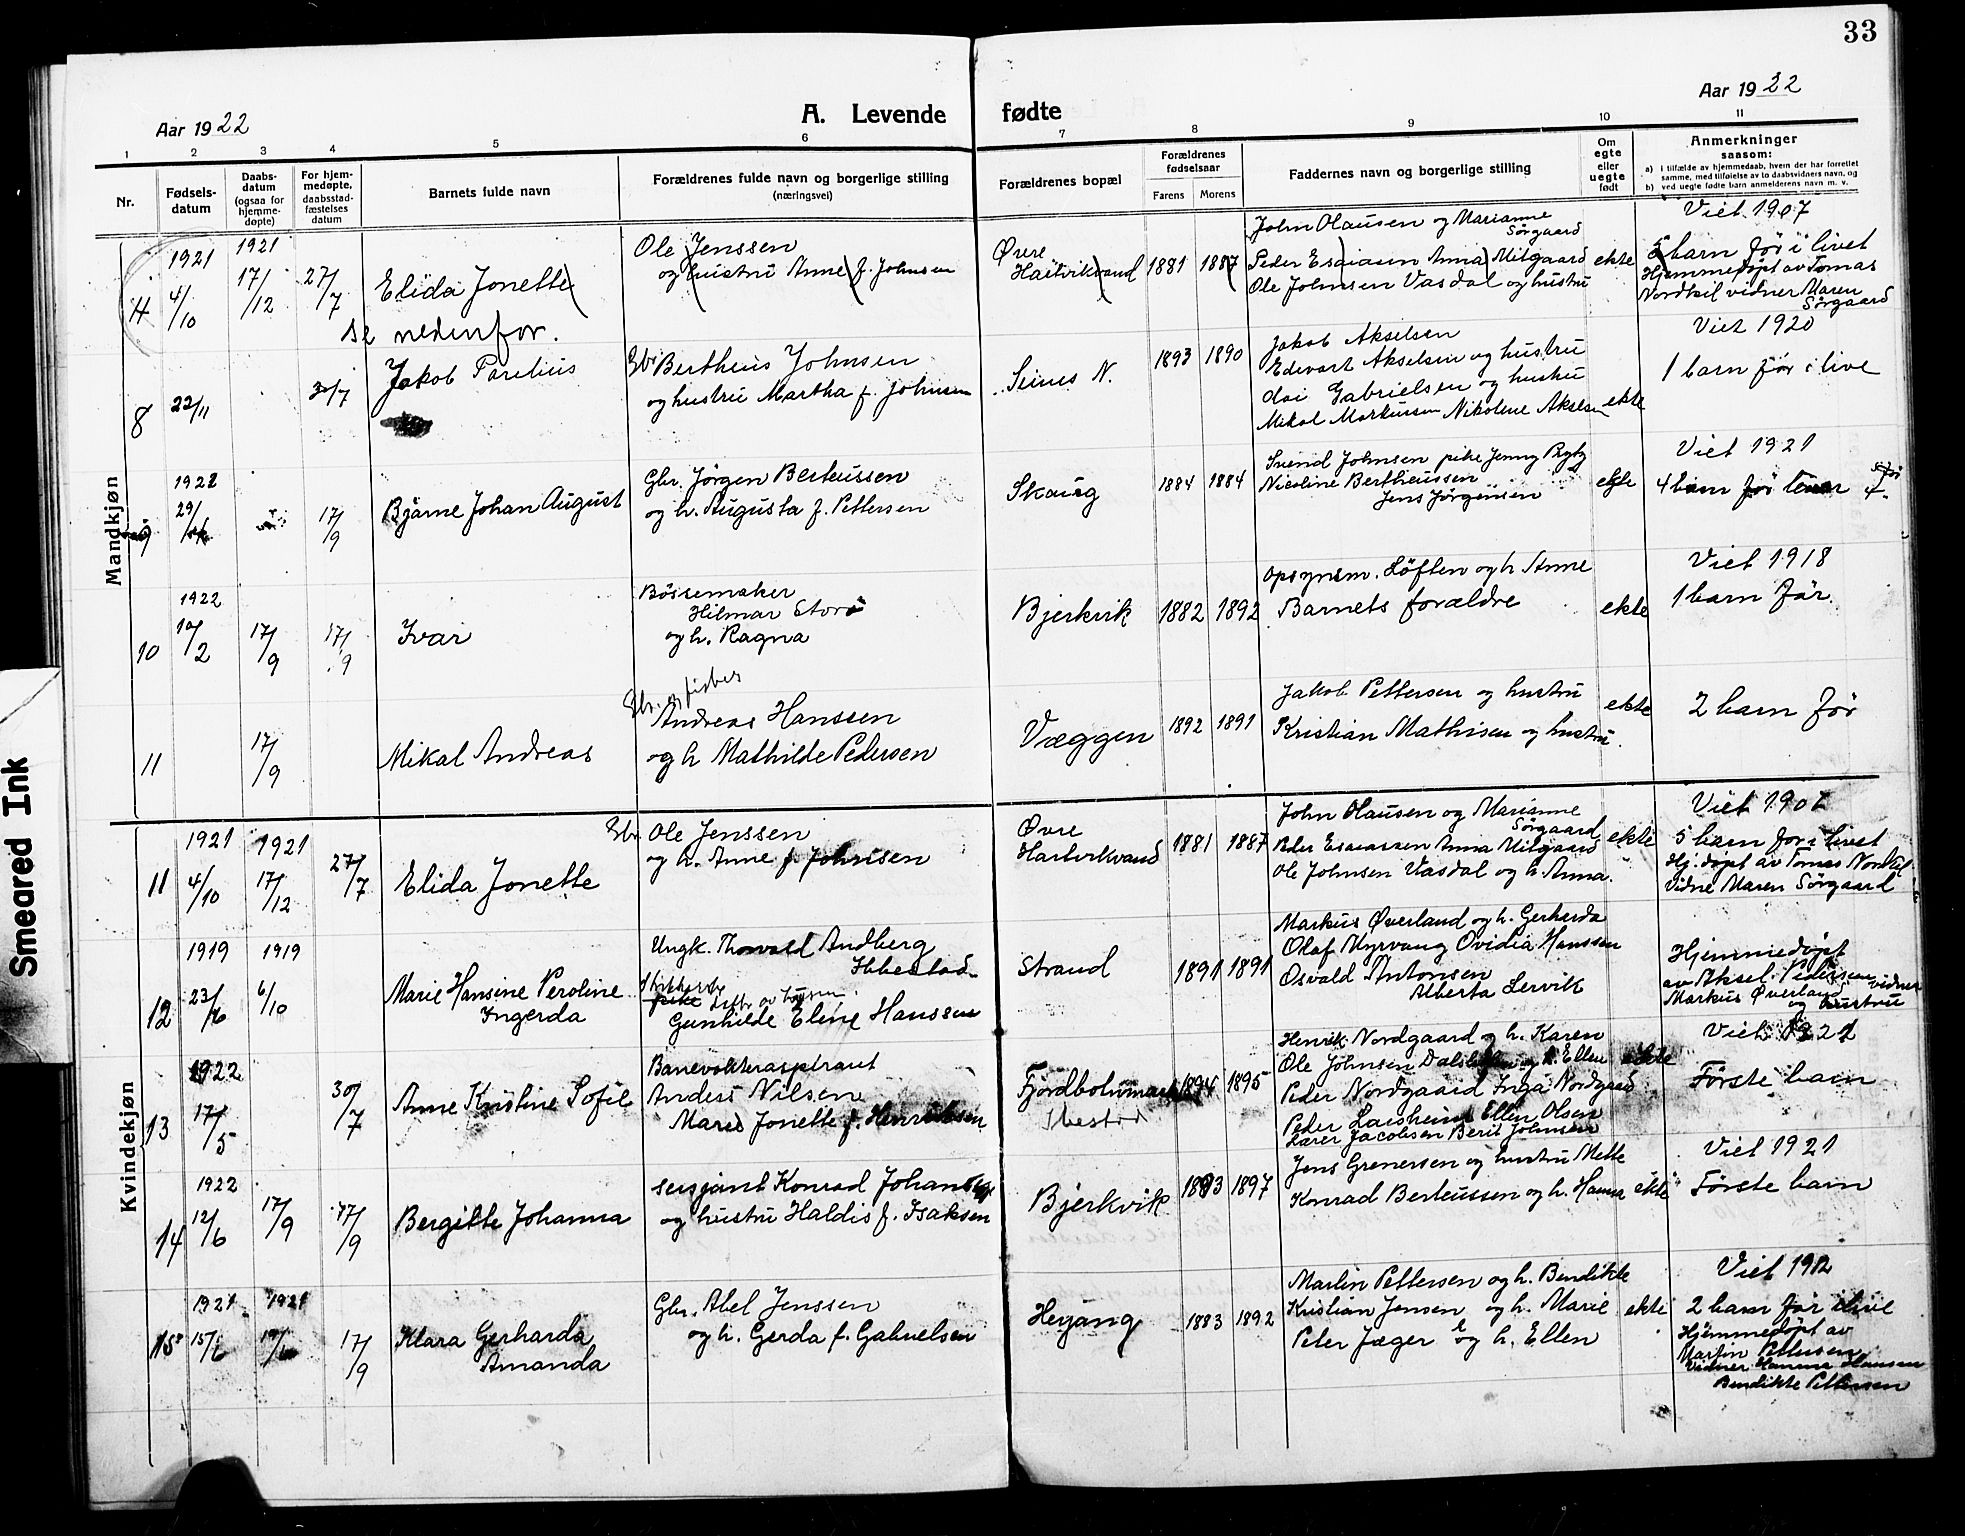 33
Aar 1922
A. Levende fødte
Aar 1922
1 2 3 4 5 6 7 8 9 10 11
Nr.
Fødsels-
datum
Daabs-
datum
(ogsaa for
hjemme-
døpte)
For hjem-
medøpte,
daabsstad-
fæstelses
datum
Barnets fulde navn
Forældrenes fulde navn og borgerlige stilling
(næringsvei)
Forældrenes bopæl
Forældrenes
fødselsaar
Farens Morens
Faddernes navn og borgerlige stilling
Om
egte
eller
uegte
født
Anmerkninger
saasom:
a) I tilfælde av hjemmedaab, hvem der har forrettet
samme, med tilføielse av to daabsvidners navn, og
b) ved uegte fødte barn anmelderens navn m. v.
Mandkjøn
1921
4/10
1921
17/12
27/7
Elida Jonette
Se nedenfor.
Ole Jenssen
og hustru Anne f. Johnsen
Øvre
Hartvikvand
1881 1887
John Olausen og Marianne
Sørgaard
Peder Esaiasen Anna Mitgaard
Ole Johnsen Vasdal og hustru
ekte
Viet 1907
5 barn før i livet
Hjemmedøpt av Tomas
Nordkil vidner Maren
Sørgaard
8
22/11
30/7
Jakob Parelius
Gbr Bertheus Johnsen
og hustru Martha f. Johnsen
Seines N.
1893 1890
Jakob Akselsen
Edevart Akselsen og hustru
Gabrielsen og hustru
Mikal Markussen Nikoline Akselsen
ekte
Viet 1920
1 barn før i live
9
192
29/
17/9
Bjarne Johan August
Gbr. Jørgen Berteussen
og h. Augusta f. Pettersen
Skaug
1884 1884
Svend Johnsen pike Jenny
Nicoline Bertheussen
Jens Jørgensen
ekte
Viet 1921
4 barn før
10
1922
10/2
17/9
17/9
Ivar
Bössemaker
Hilmar Storø
og h. Ragna
Bjerkvik
1882 1892
Opsynsm. Löften og h. Anne
Barnets forældre
ekte
Viet 1918
1 barn før.
11
17/9
Mikal Andreas
Gbr. og fisker
Andreas Hanssen
og h. Mathilde Pedersen
Væggen
1892 1891
Jakob Pettersen og hustru
Kristian Mathisen og hustru.
ekte
2 barn før
Kvindekjøn
11
1921
4/10
1921
17/12
27/7
Elida Jonette
Gbr. Ole Jenssen
og h. Anne f. Johnsen
Øvre
Hartvikvand
1881 1887
John Olausen og Marianne
Sørgaard
Peder Esaiassen Anna Mitgaard
Ole Johnsen Vasdal og h. Anna.
ekte
Viet 190
5 barn før i livet
Hj. døpt av Tomas Nordkil
Vidne Maren Sørgaard
12
1919
23/6
1919
6/10
Marie Hansine Peroline
Ingerda
Ungk. Thorvald Andberg
Ibbestad
Gunhilde Elene Hanssen
Strand
1891 1891
Markus Øverland og h. Gerharda
Olaf Myrvang Ovidia Hanssen
Osvald Antonsen
Alberta Lervik
Hjemmedøpt
av Aksel Pedersen vidner
Markus Øverland
og hustru
13
1922
17/5
30/7
Anne Kristine Sofie
Banevokteraspirant
Anders Nilsen
Marie Jonette f. Henriksen
Fjordbotnmark
Ibestad
1894 1895
Henrik Nordgaard og h. Karen
Ole Johnsen og h. Ellen
Peder Nordgaard Inga Nordgaard
Peder Ellen Olsen
Lærer Jacobsen Berit Johnsen
ekte
Viet 1921
Første barn
14
1922
12/6
17/9
17/9
Bergitte Johanna
Sersjant Konrad Johansen
og hustru Haldis f. Isaksen
Bjerkvik
1893 1897
Jens Grenersen og hustru Mette
Konrad Berteussen og h. Hanna
ekte
Viet 1921
Første barn
15
1921
15/6
1921
17/9
Klara Gerharda
Amanda
Gbr. Abel Jenssen
og h. Gerda f. Gabrielsen
Hergang
1883 1892
Martin Pettersen og h. Bendikte
Kristian Jensen og h. Marie
Peter Jæger og h. Ellen
ekte
Viet 1912
2 barn før ilive
Hjemmedøpt av
Martin Pettersen
Vidner Hanna Hansen
Bendikte Pettersen
Smeared Ink